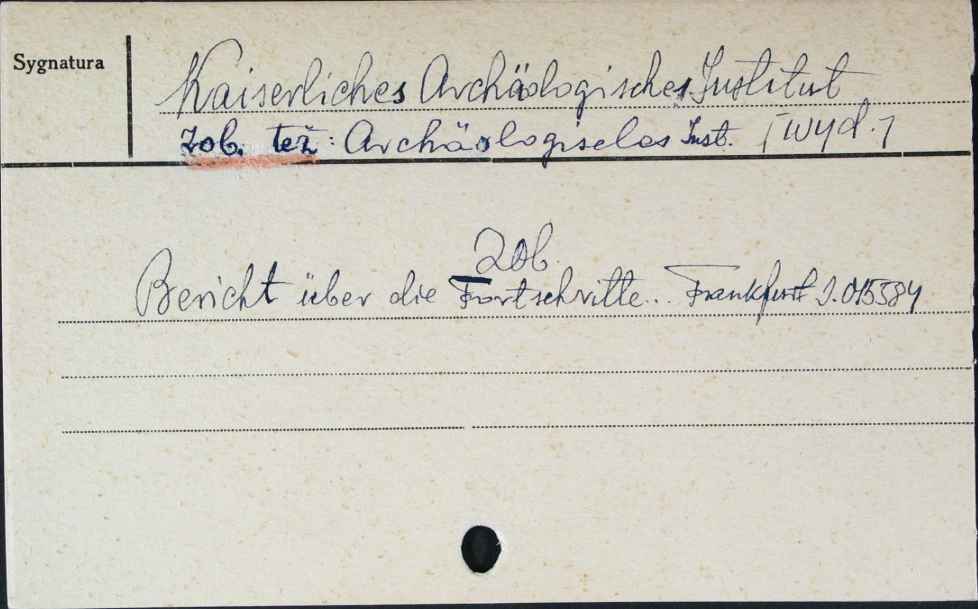 Sygnatura
Kaiserliches Archäologisches Institut
zob. też: Archäologisches Inst. [wyd.]
Zob.
Bericht über die Fortschritte... Frankfurt I.015584